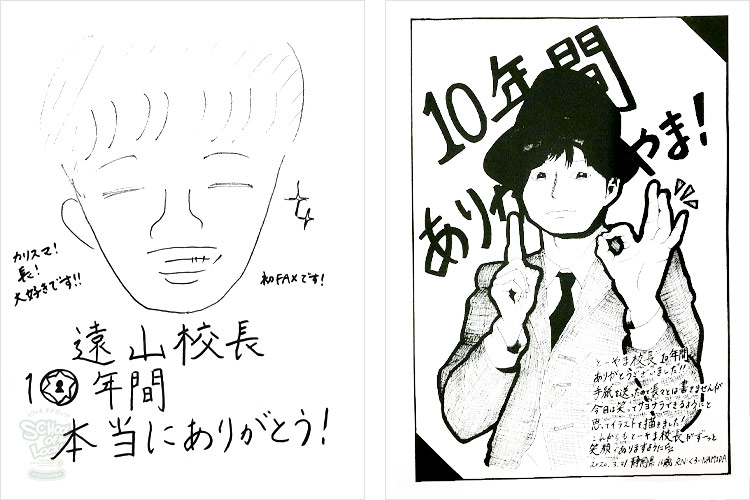 カリスマ!
長!
大好きです!!
初FAXです!
遠山校長
10年間
本当にありがとう!
SCHOOL OF LOCK!
10年間
ありが
やま!
とーやま校長10年間
ありがとうございました!!
手紙を送 長々とは書きませんが
今日は笑ってサヨナラできるようにと
思ってイラストを描きました!
これからもとーやま校長がずーっと
笑顔でありますように
2020.3.31 静岡県 RN